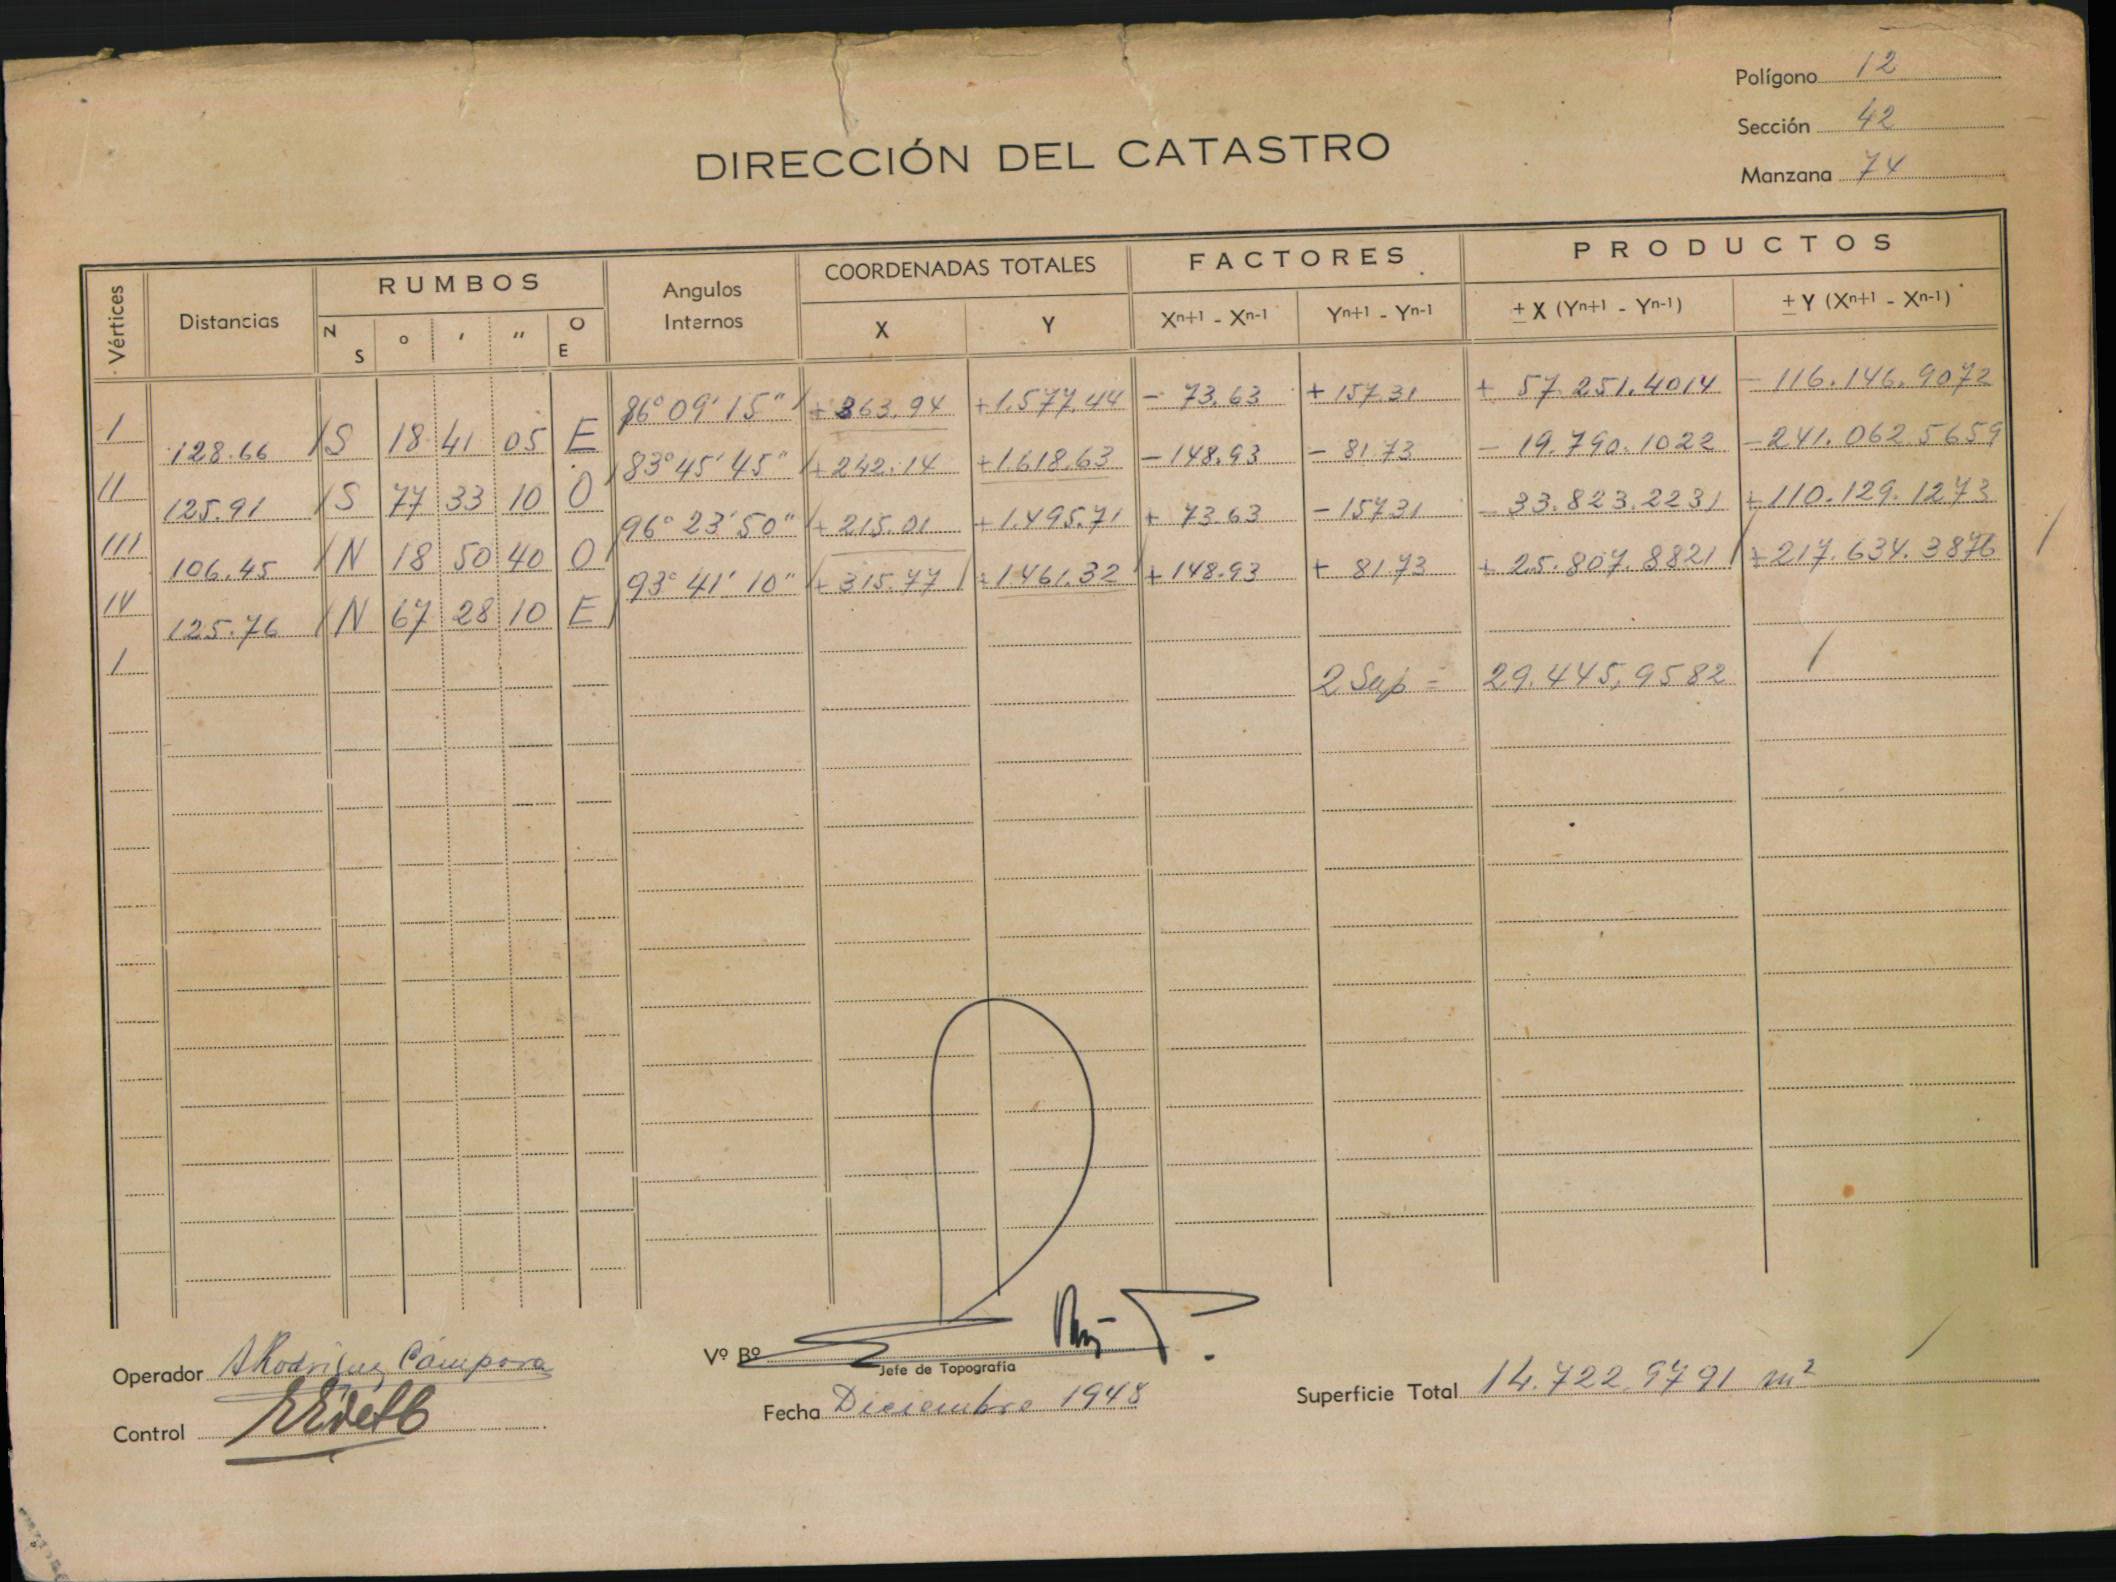 Polígono 12
Sección 42
Manzana 74
DIRECCIÓN DEL CATASTRO
Vértices Distancias RUMBOS Angulos Internos COORDENADAS TOTALES FACTORES PRODUCTOS
N S ° ' " O E X Y Xn+1 - Xn-1 Yn+1 - Yn-1 ± X (Yn+1 - Yn-1) ± Y (Xn+1 - Xn-1)
I 86° 09' 15" + 363.94 +1.577.44 - 73.63 + 157.31 + 57.251.4014 - 116.146.9072
128.66 S 18 41 05 E
II 83° 45' 45" + 242.14 +1.618.63 - 148.93 - 81.73 - 19.790.1022 - 241.062.5659
125.91 S 77 33 10 O
III 96° 23' 50" + 215.01 + 1.495.71 + 73.63 - 157.31 - 33.823.2231 + 110.129.1273
106.45 N 18 50 40 O
IV 93° 41' 10" + 315.77 + 1.461.32 + 148.93 + 81.73 + 25.807.8821 + 217.634.3876
125.76 N 67 28 10 E
I
2 Sup = 29.445,9582
Operador A Rodriguez Cámpora
Vº Bº
Jefe de Topografía
Control
Fecha Diciembre 1948
Superficie Total 14.722.9791 m²